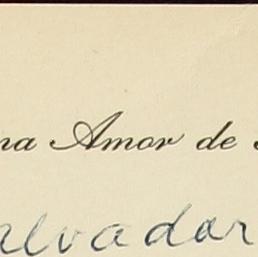 na Amor de
alvador